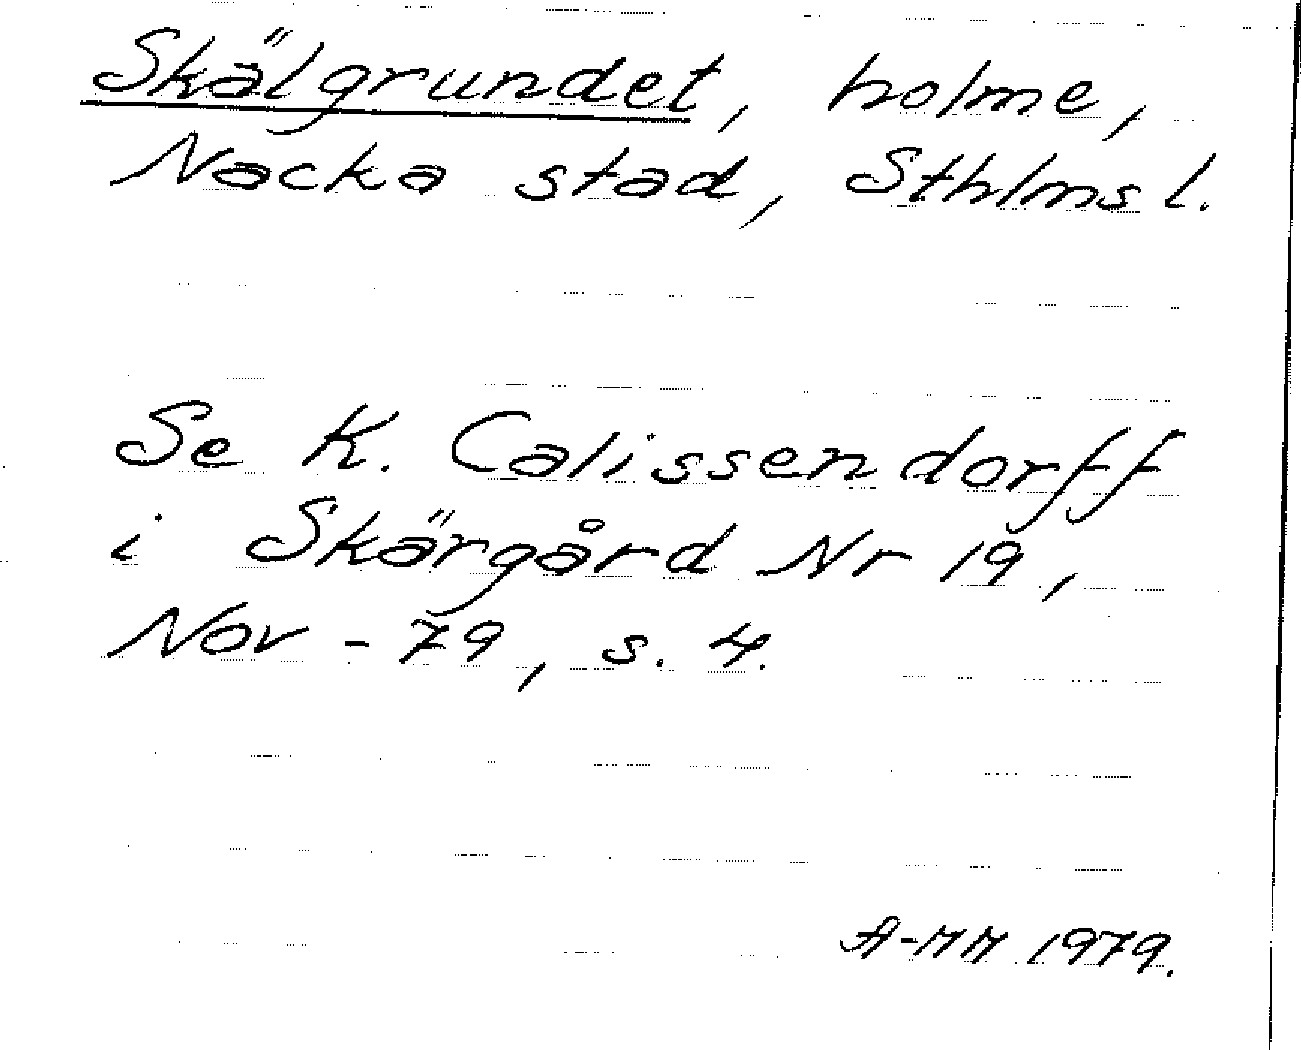 Skälgrundet, holme,
Nacka stad, Sthlms l.
Se K. Calissendorff
i Skärgård Nr 19,
Nov - 79, s. 4.
A-MM 1979.